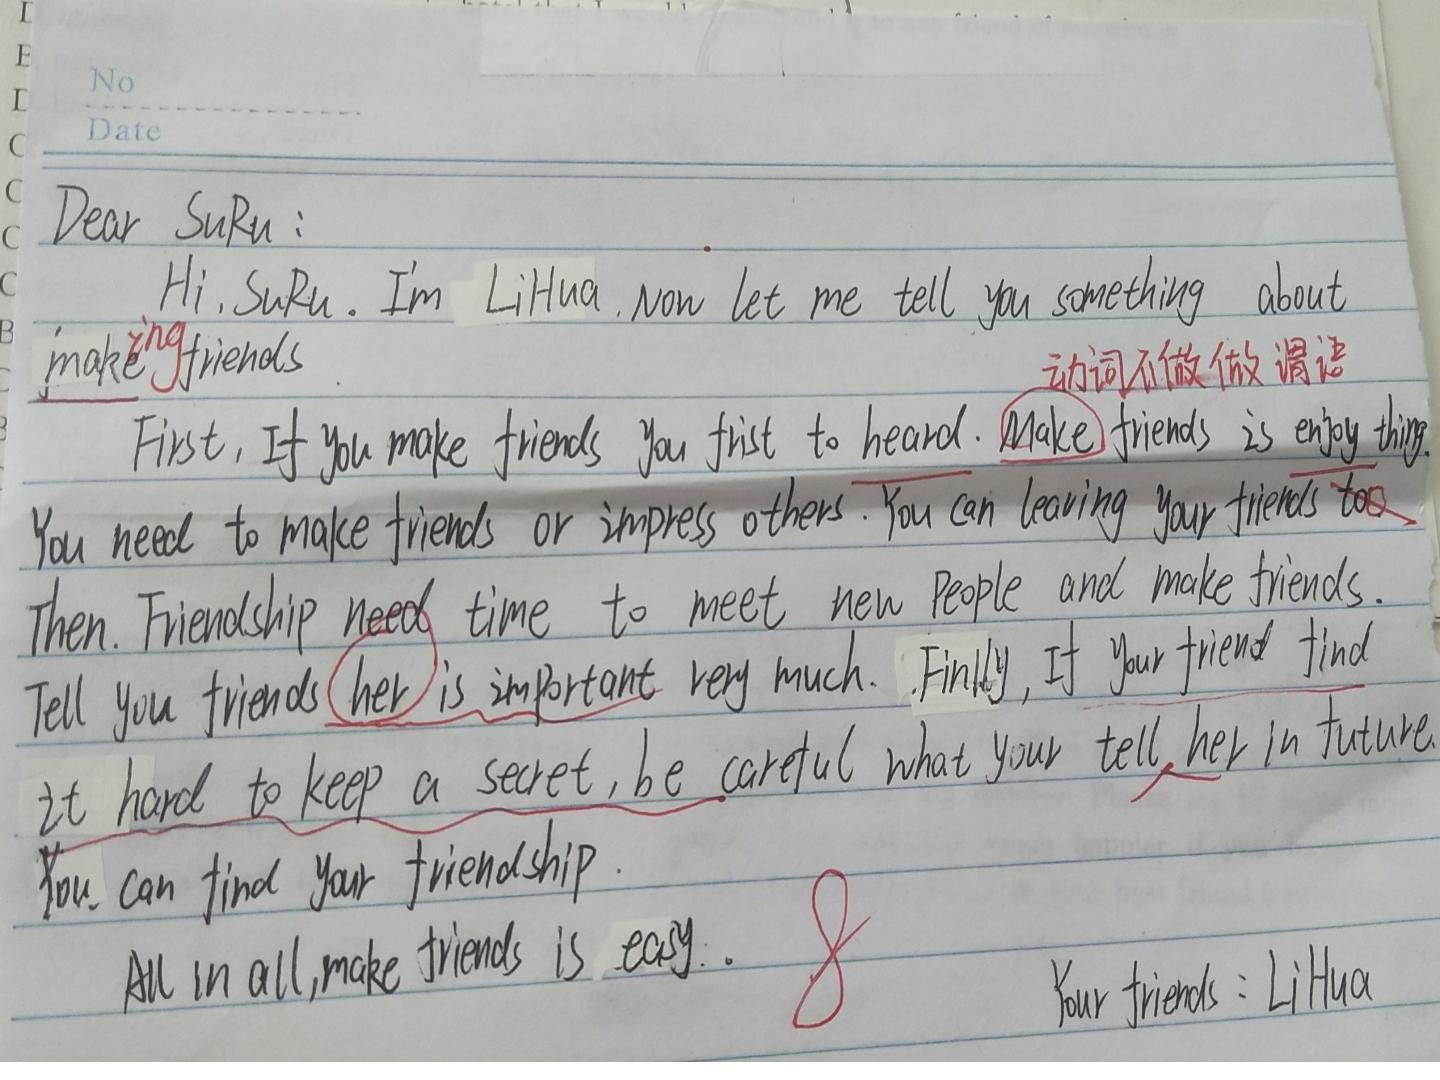 No
Date
Dear SuRu:
Hi, SuRu. I'm LiHua. Now let me tell you something about
make ing friends
动词不做做谓语
First, If you make friends you frist to heard. Make friends is enjoy thing.
You need to make friends or impress others. You can leaving your friends too
Then. Friendship need time to meet new People and make friends.
Tell you friends her is important very much. Finlly, If your friend find
it hard to keep a secret, be careful what your tell her in future.
You can find your friendship.
All in all, make friends is easy.
8
Your friends: LiHua